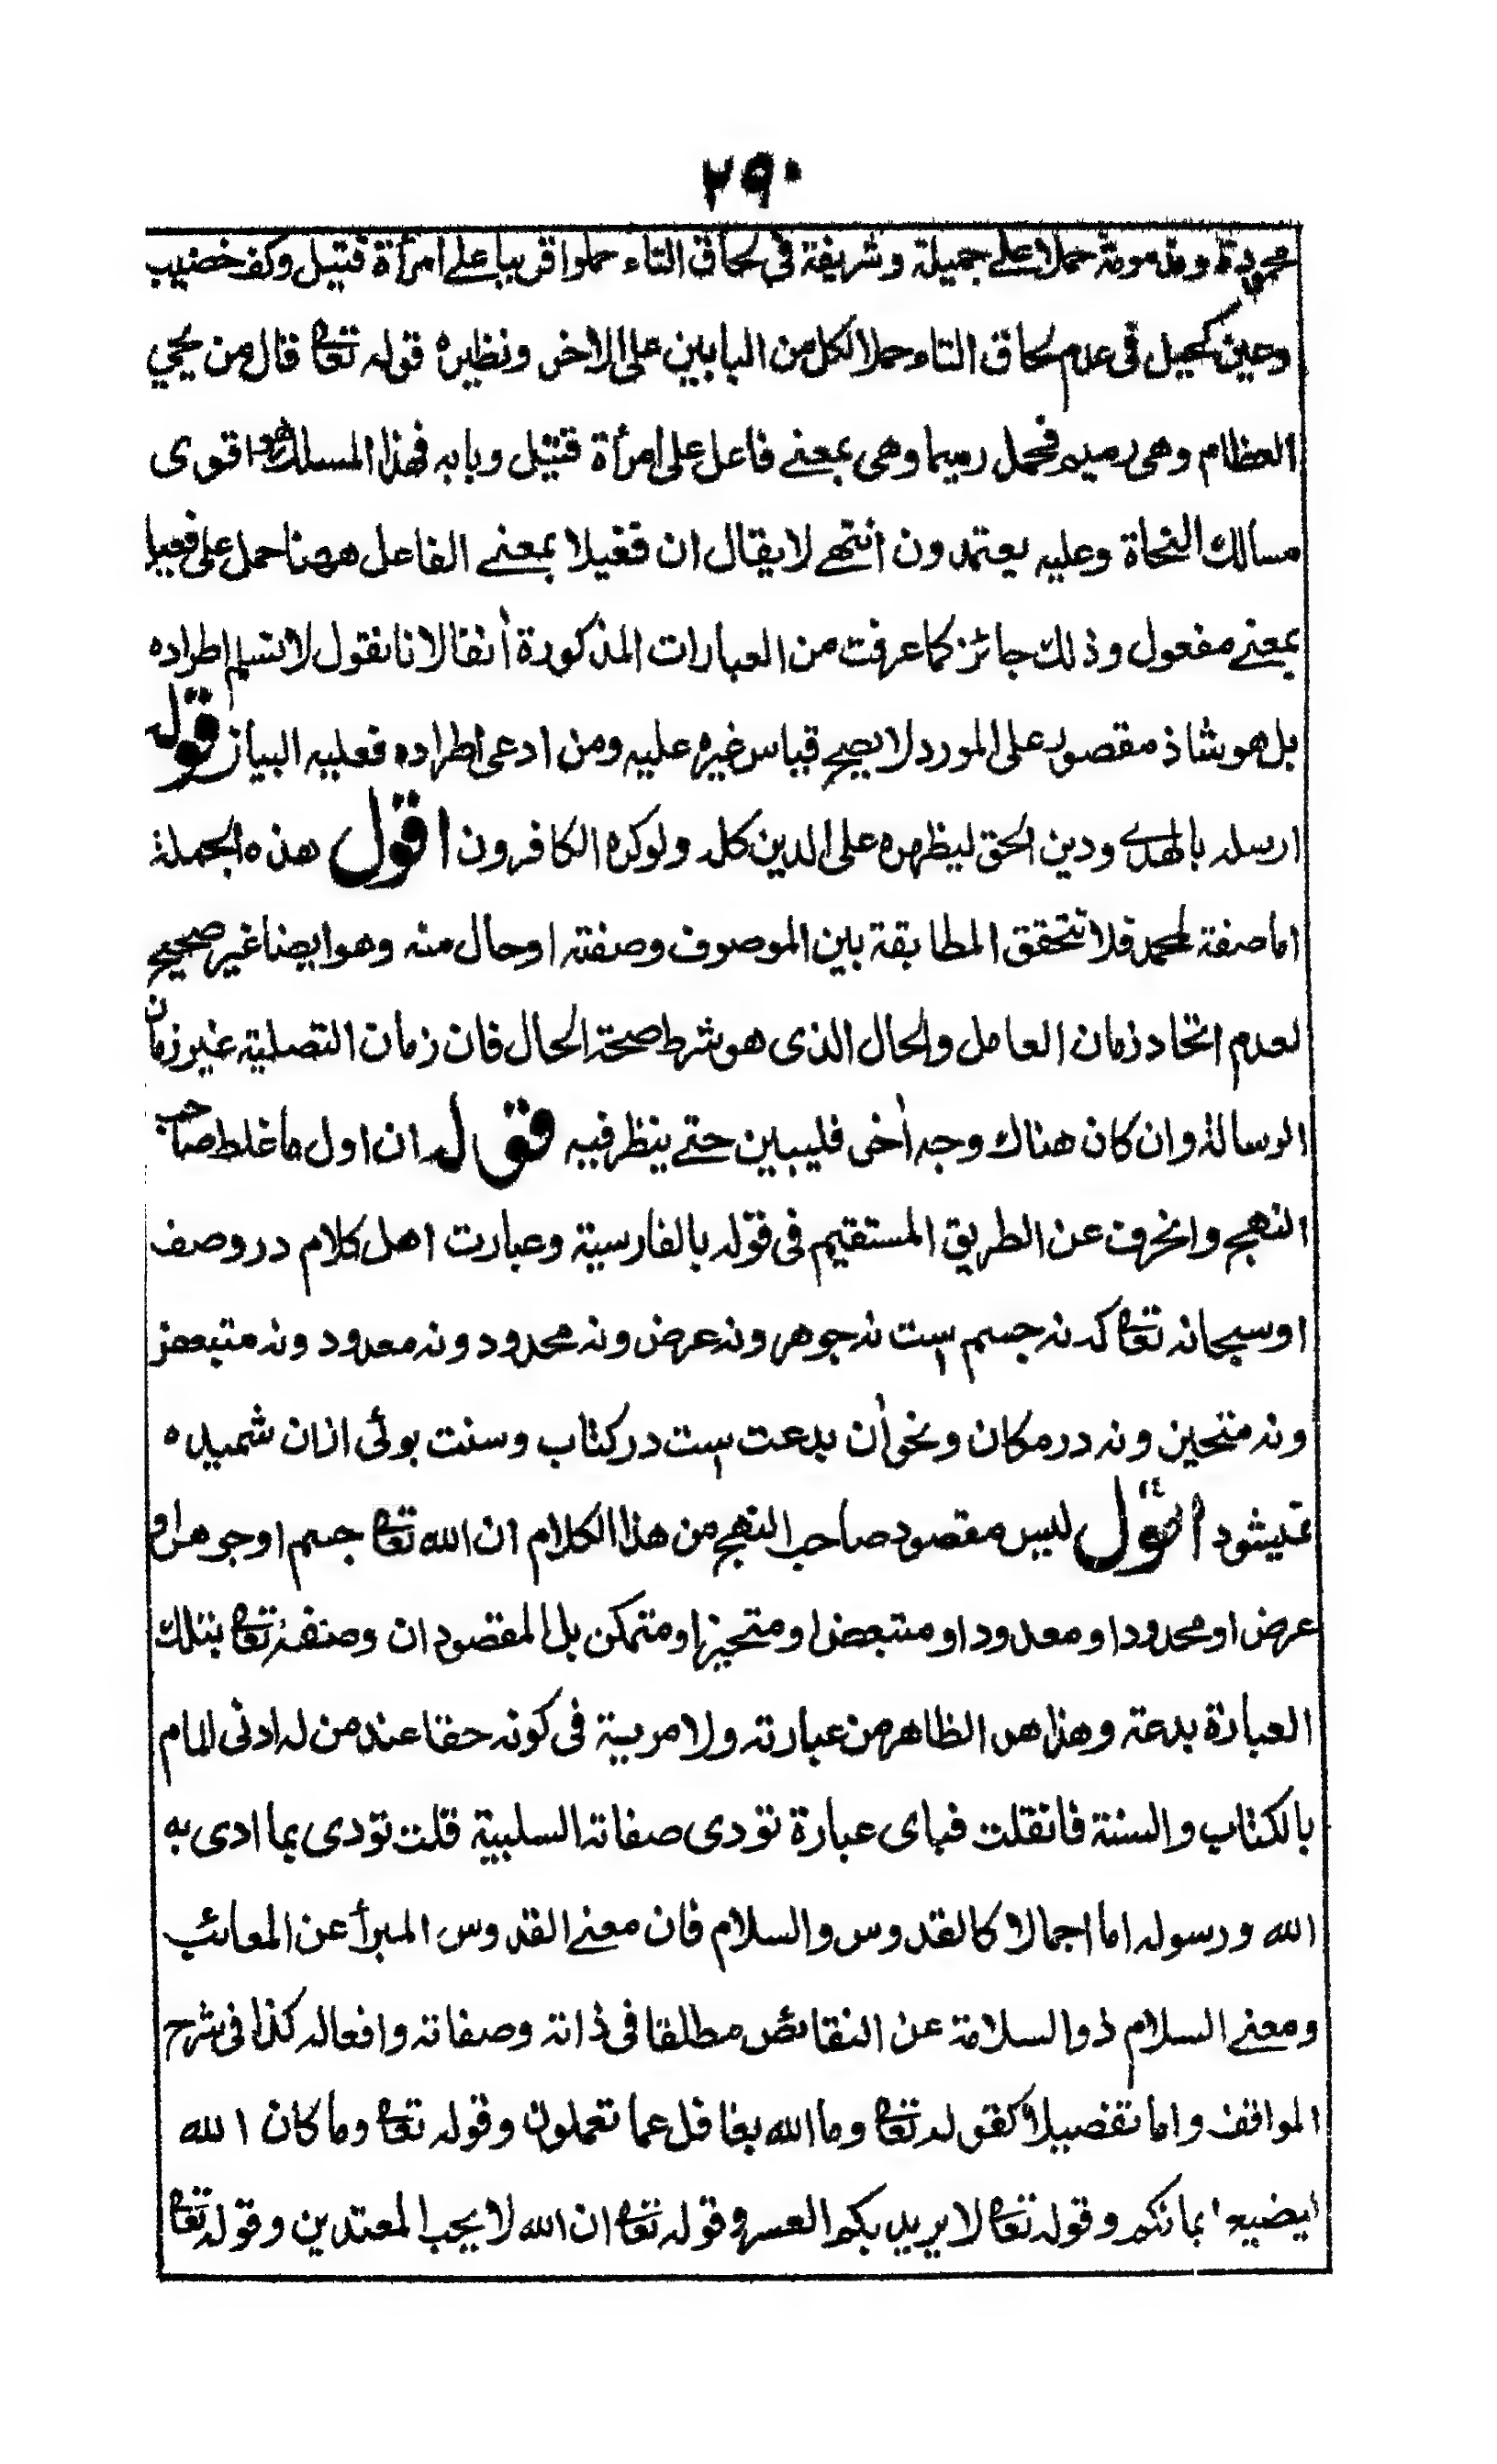 ٢٩٠
محمودة ومذمومة حملا على جميلة وشريفة فى لحاق التاء حملوا قريبا على امرأة قتيل وكف خضيب
وعين كحيل فى عدم لحاق التاء حملا لكل من البابين على الاخر ونظيره قوله تعالى قال من يحي
العظام وهى رميم فحمل رميما وهى بمعنے فاعل على امرأة قتيل وبابه فهذا المسلك هو اقوى
مسالك النحاة وعليه يعتمدون انتهے لا يقال ان فعيلا بمعنے الفاعل ههنا حمل على فعيل
بمعنے مفعول وذلك جائز كما عرفت من العبارات المذكورة أنفا لانا نقول لا نسلم اطراده
بل هو شاذ مقصور على المورد لا يصح قياس غيره عليه ومن ادعى اطراده فعليه البيان قوله
ارسله بالهدے ودين الحق ليظهره على الدين كله ولو كره الكافرون اقول هذه الجملة
اما صفة لمحمد فلا تتحقق المطابقة بين الموصوف وصفته او حال منه وهو ايضا غير صحيح
لعدم اتحاد زمان العامل والحال الذى هو شرط صحة الحال فان زمان التصلية غير زمان
الرسالة وان كان هناك وجه أخر فليبين حتے ينظر فيه قوله ان اول ما غلط صاحب
النهج وانحرف عن الطريق المستقيم فى قوله بالفارسية وعبارت اهل كلام در وصف
او سبحانه تعالى كه نه جسم ست نه جوهر ونه عرض ونه محدود ونه معدود ونه متبعض
ونه متحيز ونه در مكان ونحو أن بدعت ست در كتاب وسنت بوئى ازان شميده
نميشود اقول ليس مقصود صاحب النهج من هذا الكلام ان الله تعالى جسم او جوهر او
عرض او محدود او معدود او متبعض او متحيز او متمكن بل المقصود ان وصفه تعالى بتلك
العبارة بدعة وهذا هو الظاهر من عبارته ولا مرية فى كونه حقا عند من له ادنى المام
بالكتاب والسنة فان قلت فباى عبارة تودى صفاته السلبية قلت تودى بما ادى به
الله ورسوله اما اجمالا كالقدوس والسلام فان معنے القدوس المبرأ عن المعائب
ومعنے السلام ذو السلامة عن النقائص مطلقا فى ذاته وصفاته وافعاله كذا فى شرح
المواقف واما تفصيلا كقوله تعالى وما الله بغافل عما تعملون وقوله تعالى وما كان الله
ليضيع ايمانكم وقوله تعالى لا يريد بكم العسر وقوله تعالى ان الله لا يحب المعتدين وقوله تعالى